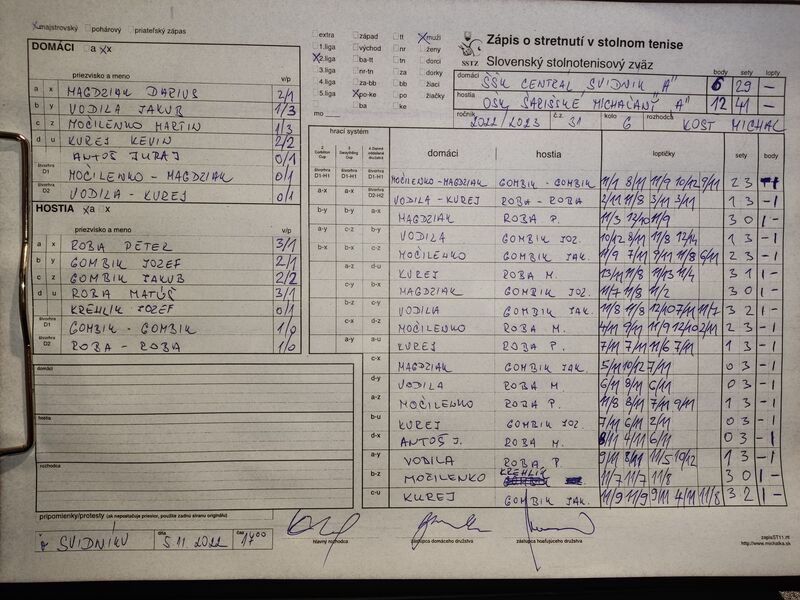 x majstrovský pohárový priateľský zápas
DOMÁCI a x x
priezvisko a meno v/p
a x MAGDZIAK DARIUS 2/1
b y VODILA JAKUB 1/3
c z MOČILENKO MARTIN 1/3
d u KUREJ KEVIN 2/2
ANTOŠ JURAJ 0/1
štvorhra D1 MOČILENKO - MAGDZIAK 0/1
štvorhra D2 VODILA - KUREJ 0/1
HOSTIA x a x
priezvisko a meno v/p
a x ROBA PETER 3/1
b y GOMBIK JOZEF 2/1
c z GOMBIK JAKUB 2/2
d u ROBA MATÚŠ 3/1
KREHLIK JOZEF 0/1
štvorhra D1 GOMBIK - GOMBIK 1/0
štvorhra D2 ROBA - ROBA 1/0
domáci
hostia
rozhodca
extra západ tt x muži
1.liga východ nr ženy
x 2.liga ba-tt tn dorci
3.liga nr-tn za dorky
4.liga za-bb bb žiaci
5.liga x po-ke po žiačky
mo ba ke
SSTZ
Zápis o stretnutí v stolnom tenise
Slovenský stolnotenisový zväz
domáci ŠŠK CENTRAL SVIDNÍK "A" body 6 sety 29 lopty —
hostia OŠK ŠARIŠSKÉ MICHAĽANY "A" 12 41 —
ročník 2022/2023 č.z. 31 kolo 6 rozhodca KOST MICHAL
hrací systém domáci hostia loptičky sety body
štvorhra D1-H1 štvorhra D1-H1 štvorhra D1-H1 MOČILENKO - MAGDZIAK GOMBIK - GOMBIK 11/1 8/11 11/9 10/12 9/11 2 3 - 1
a-x a-x štvorhra D2-H2 VODILA - KUREJ ROBA - ROBA 2/11 11/8 3/11 3/11 1 3 - 1
b-y b-y a-x MAGDZIAK ROBA P. 11/3 12/10 11/9 3 0 1 -
a-y c-z b-y VODILA GOMBIK JOZ. 10/12 8/11 11/8 12/14 1 3 - 1
b-x b-x c-z MOČILENKO GOMBIK JAK. 11/9 7/11 9/11 11/8 6/11 2 3 - 1
a-z d-u KUREJ ROBA M. 13/11 11/8 11/13 11/4 3 1 1 -
c-y b-x MAGDZIAK GOMBIK JOZ. 11/7 11/8 11/2 3 0 1 -
b-z c-y VODILA GOMBIK JAK. 11/8 11/8 12/10 7/11 11/7 3 2 1 -
c-x d-z MOČILENKO ROBA M. 4/11 9/11 11/9 12/10 2/11 2 3 - 1
a-y a-u KUREJ ROBA P. 7/11 7/11 11/6 7/11 1 3 - 1
c-x MAGDZIAK GOMBIK JAK. 5/11 10/12 7/11 0 3 - 1
d-y VODILA ROBA M 6/11 9/11 6/11 0 3 - 1
a-z MOČILENKO ROBA P. 11/8 8/11 7/11 9/11 1 3 - 1
b-u KUREJ GOMBIK JOZ. 7/11 6/11 2/11 0 3 - 1
d-x ANTOŠ J. ROBA M. 8/11 4/11 6/11 0 3 - 1
a-y VODILA ROBA P. 9/11 8/11 11/5 10/12 1 3 - 1
b-z MOČILENKO KREHLIK 11/7 11/7 11/8 3 0 1 -
c-u KUREJ GOMBIK JAK. 11/9 11/9 9/11 4/11 11/8 3 2 1 -
pripomienky/protesty (ak nepostačuje priestor, použite zadnú stranu originálu)
v SVIDNÍKU dňa 5.11.2022 čas 17:00
hlavný rozhodca zástupca domáceho družstva zástupca hosťujúceho družstva
zapisST11.rtf
http://www.michalka.sk